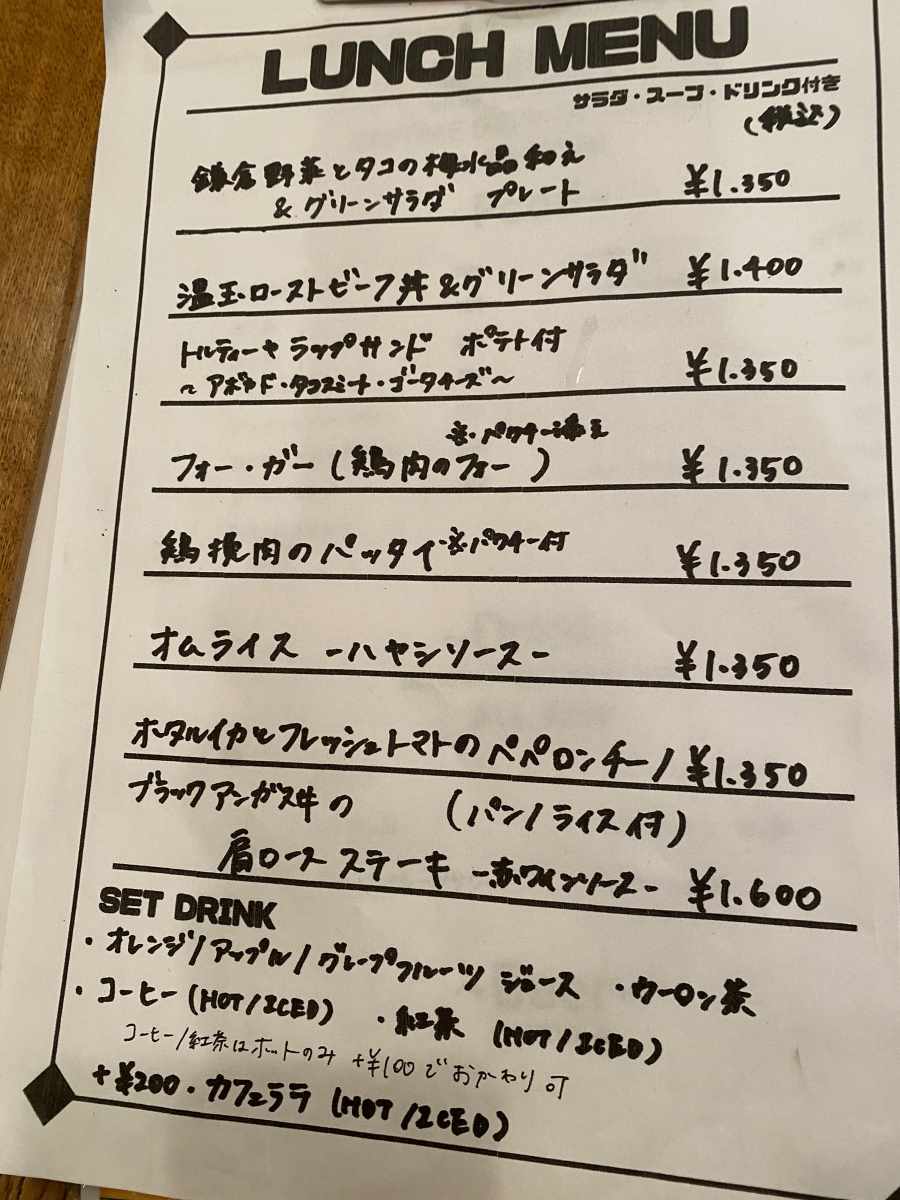 LUNCH MENU
サラダ・スープ・ドリンク付き
(税込)
鎌倉野菜とタコの梅水晶和え
& グリーンサラダ プレート ¥1.350
温玉ローストビーフ丼&グリーンサラダ ¥1.400
トルティーヤラップサンド ポテト付
~アボカド・タコスミート・ゴーダチーズ~ ¥1.350
※パクチー添え
フォー・ガー(鶏肉のフォー) ¥1.350
鶏挽肉のパッタイ ※パクチー付 ¥1.350
オムライス -ハヤシソース- ¥1.350
ホタルイカとフレッシュトマトのペペロンチーノ ¥1.350
ブラックアンガス牛の (パン/ライス付)
肩ロースステーキ -赤ワインソース- ¥1.600
SET DRINK
・オレンジ/アップル/グレープフルーツ ジュース ・ウーロン茶
・コーヒー(HOT/ICED) ・紅茶 (HOT/ICED)
コーヒー/紅茶はホットのみ +¥100でおかわり可
+¥200・カフェラテ (HOT/ICED)